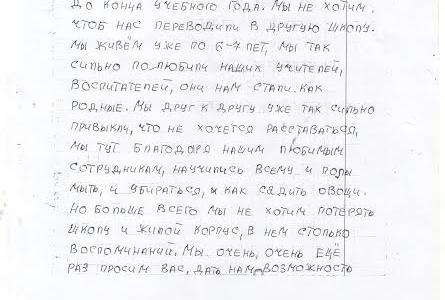 до конца учебного года. Мы не хотим,
чтоб нас переводили в другую школу.
Мы живём уже по 6-7 лет, мы так
сильно полюбили наших учителей,
воспитателей, они нам стали как
родные. Мы друг к другу уже так сильно
привыкли, что не хочется расставаться,
мы тут благодаря нашим любимым
сотрудникам, научились всему и полы
мыть, и убираться, и как садить овощи.
Но больше всего мы не хотим потерять
школу и жилой корпус, в нем столько
воспоминаний. Мы очень, очень ещё
раз просим вас, дать нам возможность